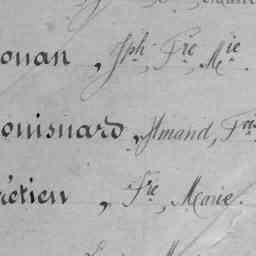 onan, Jph Fre Mie
ouisnard, Amand, Fre
rétien, Fre, Marie.